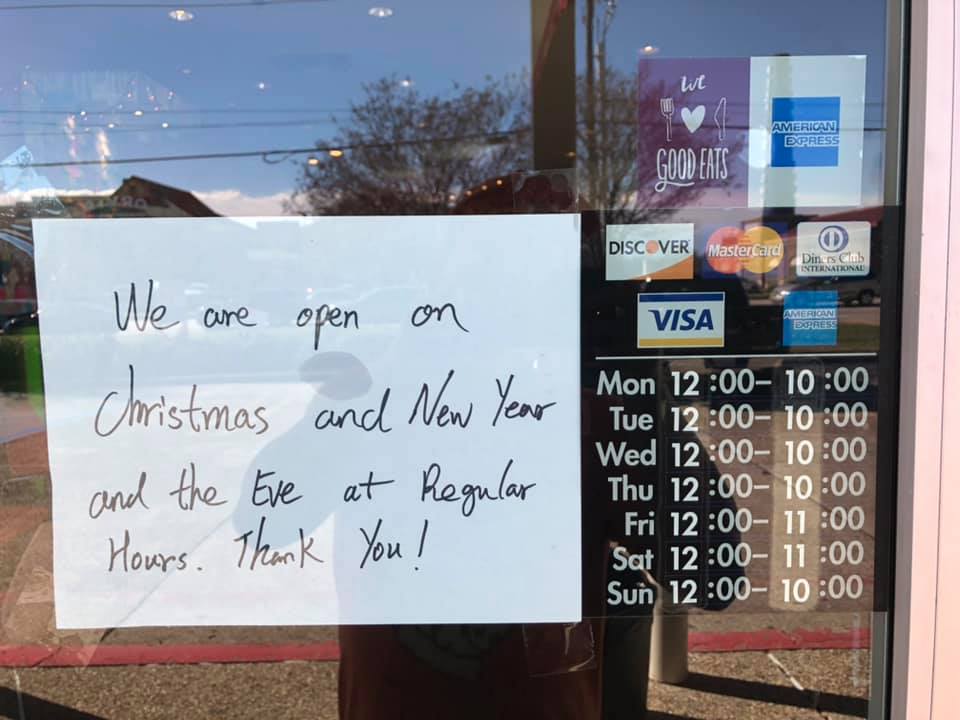 We are open on
Christmas and New Year
and the Eve at Regular
Hours. Thank You!
We
GOOD EATS
AMERICAN
EXPRESS
DISCOVER
MasterCard
Diners Club
INTERNATIONAL
VISA
AMERICAN
EXPRESS
Mon 12:00– 10:00
Tue 12:00– 10:00
Wed 12:00– 10:00
Thu 12:00– 10:00
Fri 12:00– 11:00
Sat 12:00– 11:00
Sun 12:00– 10:00